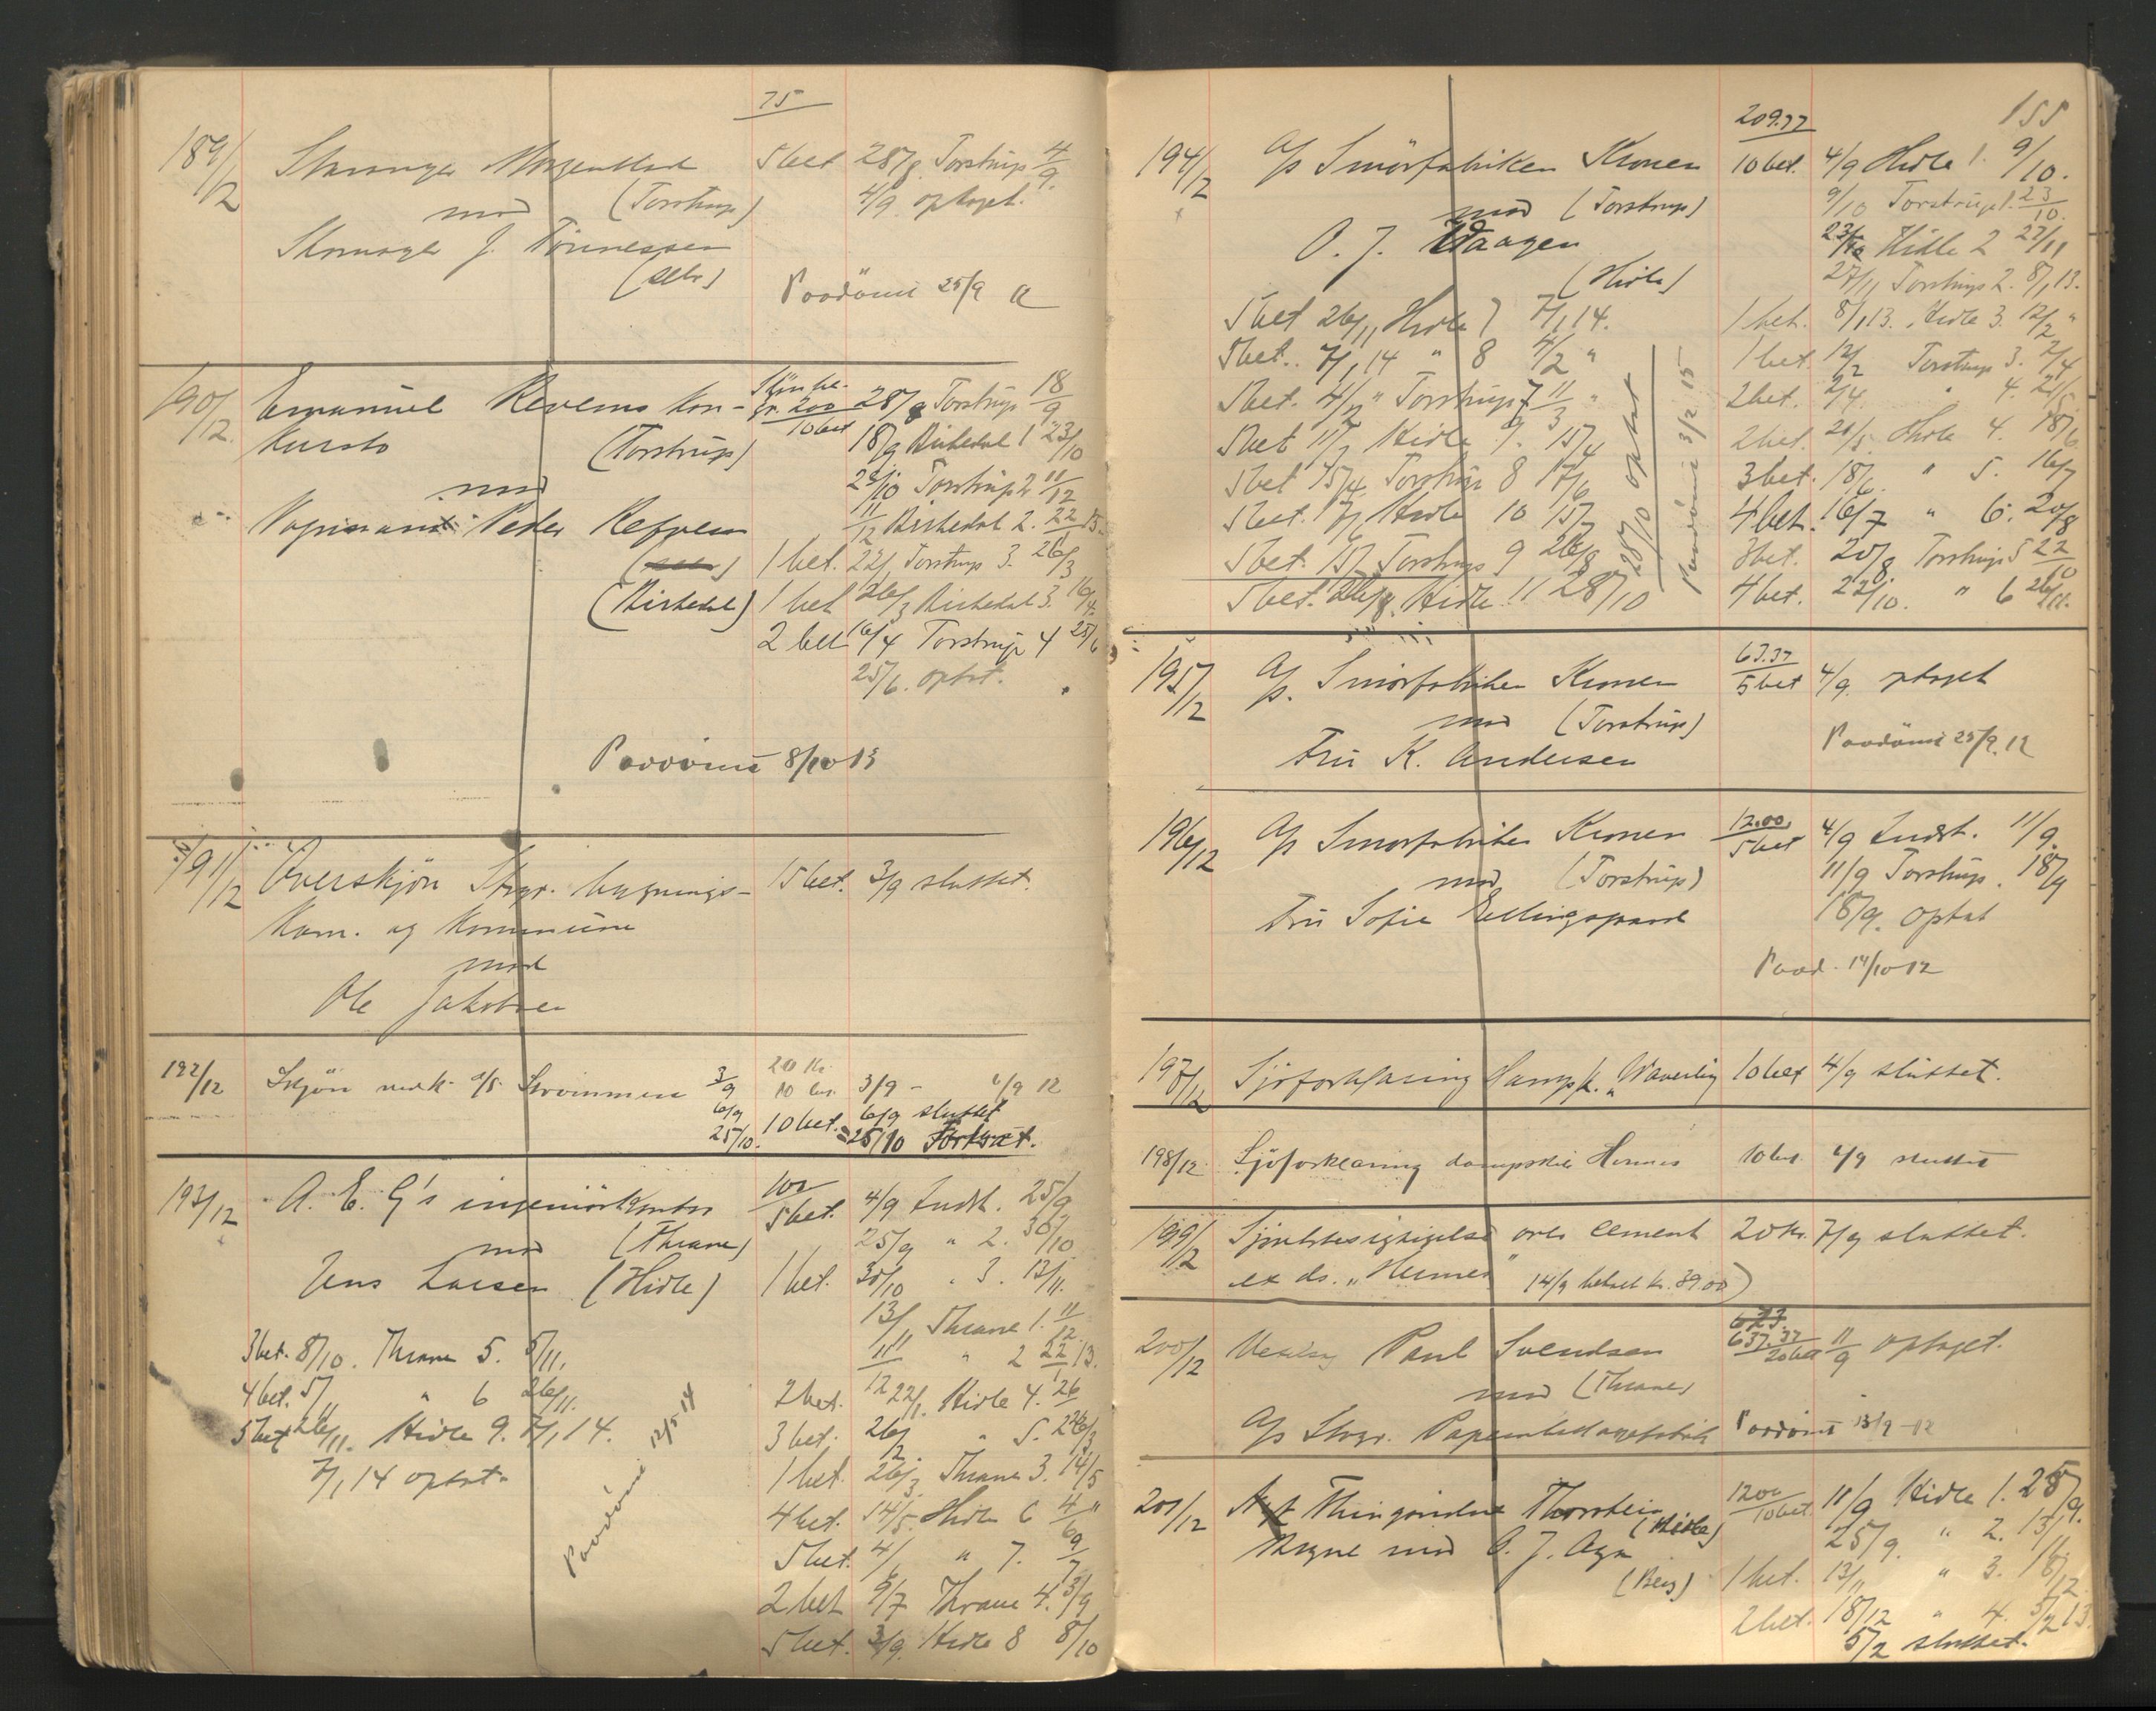 75
189/12
Morgenblad
5 bet 28/8 Torstrup 4/9.
mod (Torstrup)
4/9 optaget.
J. Tönnessen
(selv)
Paadömt 25/9 12
190/12.
Emanuel Revems kon-
200
10 bet
28/8 Torstrup 18/9
kursbo (Torstrup)
18/9 Birkedal 1 23/10
mod
23/10 Torstrup 2 11/12
Peder Refsnes
11/12 Birkedal 2. 22/1 13.
1 bet. 22/1 Torstrup 3. 26/3
(Birkedal) 1 bet 26/3 Birkedal 3. 16/4.
2 bet 16/4 Torstrup 4 25/6
25/6. optat.
Paadömt 8/10 13
191/12
Overskjön Stvgr. bygnings-
15 bet. 3/9 sluttet.
kom. og kommune
mod
Ole Jakobsen
192/12
Skjön vedk. Svommen 3/9
20 Kr.
10 bet. 3/9 - 6/9 12
6/9
10 bet. 6/9 sluttet
25/10.
25/10 Fortsat.
193/12
A. E. G's ingeniörkontor
100
5 bet. 4/9 Indst. 25/9
mod (Thrane)
25/9 " 2. 30/10
Jens Larsen (Hidle)
1 bet. 30/10 " 3. 13/11.
13/11 Thrane 1. 11/12
11/12 " 2 22/1 13.
2 bet. 22/1. Hidle 4. 26/2
3 bet. 26/2 " 5. 26/3
1 bet. 26/3. Thrane 3. 14/5
4 bet. 14/5. Hidle 6 4/6 "
5 bet. 4/6 " 7. 9/7
2 bet 9/7 Thrane 4. 3/9
5 bet. 3/9. Hidle 8 8/10
3 bet. 8/10. Thrane 5. 5/11.
4 bet. 5/11 " 6 26/11.
5 bet 26/11. Hidle 9. 7/1 14.
7/1 14 optat.
Paadömt 12/5 14
155
194/12
209.37
A/S Smörfabriken Kronen
10 bet. 4/9 Hidle 1. 9/10.
mod (Torstrup)
9/10 Torstrup 1. 23/10.
O. J. Waagen
23/10 Hidle 2 27/11
(Hidle)
27/11 Torstrup 2. 8/1 13.
1 bet. 8/1 13. Hidle 3. 12/2 "
1 bet. 12/2 Torstrup 3. 2/4
2 bet. 2/4. " 4. 21/5.
2 bet. 21/5. Hidle 4. 18/6
3 bet. 18/6. " 5. 16/7
4 bet. 16/7 " 6. 20/8
3 bet. 20/8 Torstrup 5 22/10
4 bet. 22/10. " 6 26/11.
5 bet 26/11 Hidle 7 7/1 14.
5 bet. 7/1 14 " 8 4/2 "
5 bet. 4/2 " Torstrup 7 11/3 "
5 bet 11/3 Hidle 9. 15/4
5 bet 15/4. Torstrup 8 17/6
5 bet. 17/6 Hidle 10 15/7
5 bet. 15/7 Torstrup 9 26/8
5 bet. 26/8. Hidle 11 28/10
28/10 optat
Paadömt 3/2 15
195/12
A/S. Smörfabriken Kronen
63.37
5 bet 4/9. optaget
mod (Torstrup)
Fru K. Andersen
Paadömt 25/9. 12
196/12
A/S Smörfabriken Kronen
12.00
5 bet 4/9 Indst. 11/9.
mod (Torstrup)
11/9 Torstrup. 18/9
Fru Sofie Ellingsgaard
18/9. optat
Paad. 14/10 12
197/12
Sjöforklaring Dampsk. "Waverley
10 bet 4/9 sluttet.
198/12.
Sjöforklaring dampskib Hermes
10 bet. 6/9 sluttet
199/12
Sjöretsbesigtigelse over cement
20 kr. 7/9 sluttet.
ex ds. "Hermes" 14/9 betalt kr. 39.00)
200/12
Paul Svendsen
637.37
20 bet 11/9 optaget.
mod (Thrane)
A/S Stvgr.
Paadömt 13/9 - 12
201/12
Thorstein
1200
10 bet. 11/9 Hidle 1. 25/9.
(Hidle)
mod O. J.
25/9. " 2. 13/11.
1 bet. 13/11 " 3. 18/12.
2 bet. 18/12 " 4. 5/2 13.
5/2 sluttet.